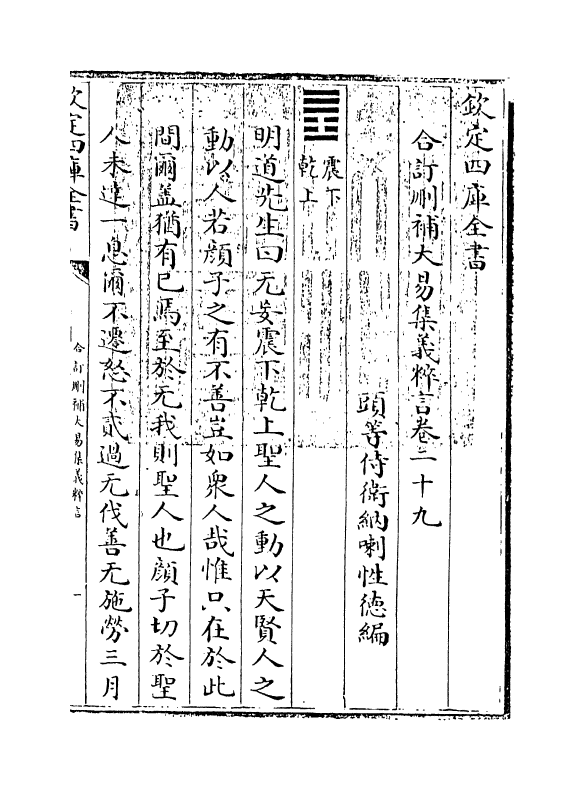 欽定四庫全書
合訂刪補大易集義粹言卷二十九
頭等侍衛納喇性德編
䷘震下
乾上
明道先生曰无妄震下乾上聖人之動以天賢人之
動以人若顔子之有不善豈如衆人哉惟只在於此
間爾盖猶有已焉至於无我則聖人也顔子切於聖
人未達一息爾不遷怒不貳過无伐善无施勞三月
欽定四庫全書
合訂刪補大易集義粹言
一